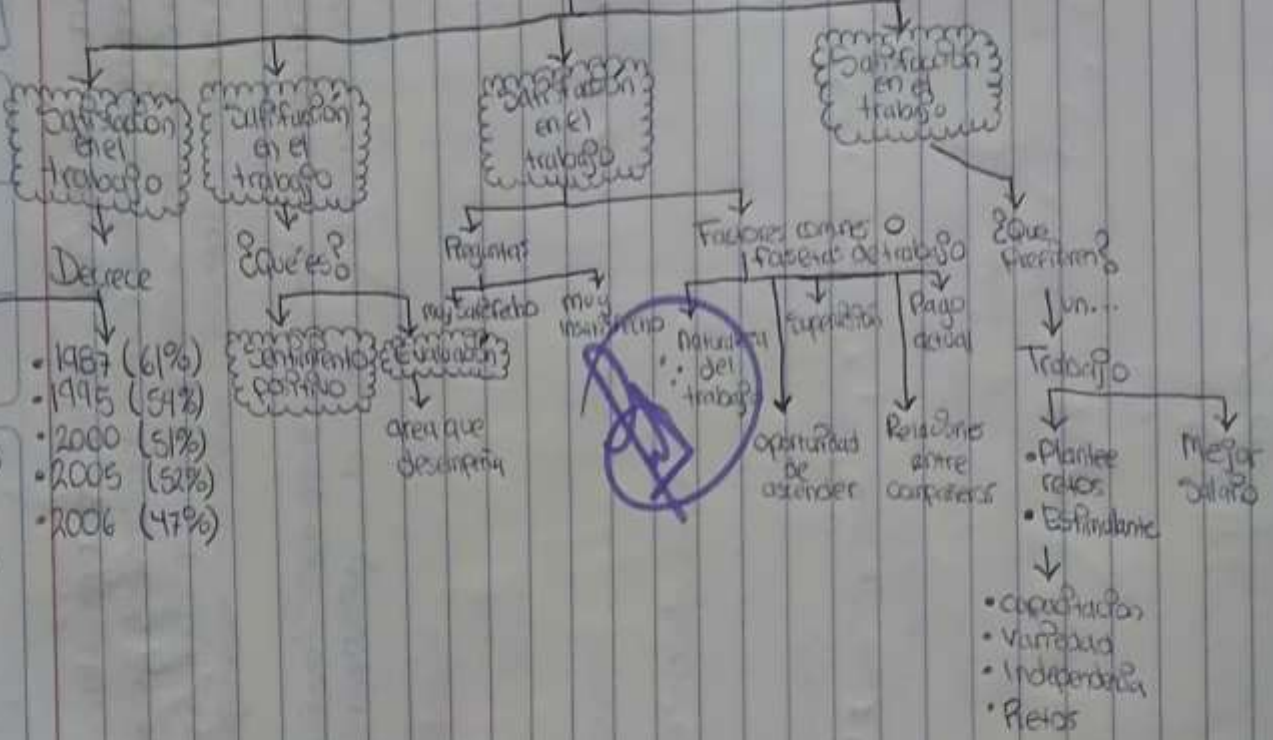 Satisfacion
en el
trabajo
Decrece
• 1987 (61%)
• 1995 (54%)
• 2000 (51%)
• 2005 (52%)
• 2006 (47%)
Satisfacion
en el
trabajo
¿Qué es?
Sentimiento
positivo
Evaluación
area que
desempeña
Satisfacion
en el
trabajo
Preguntas
muy satisfecho
muy
insatisfecho
Factores comunes o
facetas de trabajo
naturaleza
del
trabajo
oportunidad
de
ascender
Supervisión
Relaciones
entre
compañeros
Pago
actual
Satisfacción
en el
trabajo
¿Que
Prefieren?
un...
Trabajo
• Plantee
retos
• Estimulante
• capacitación
• Variedad
• Independencia
• Retos
Mejor
salario